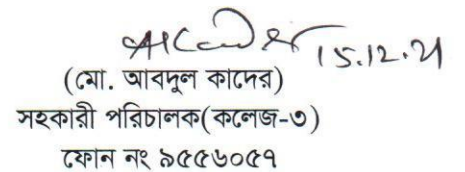 15.12.21
(মো. আবদুল কাদের)
সহকারী পরিচালক(কলেজ-৩)
ফোন নং ৯৫৫৬০৫৭